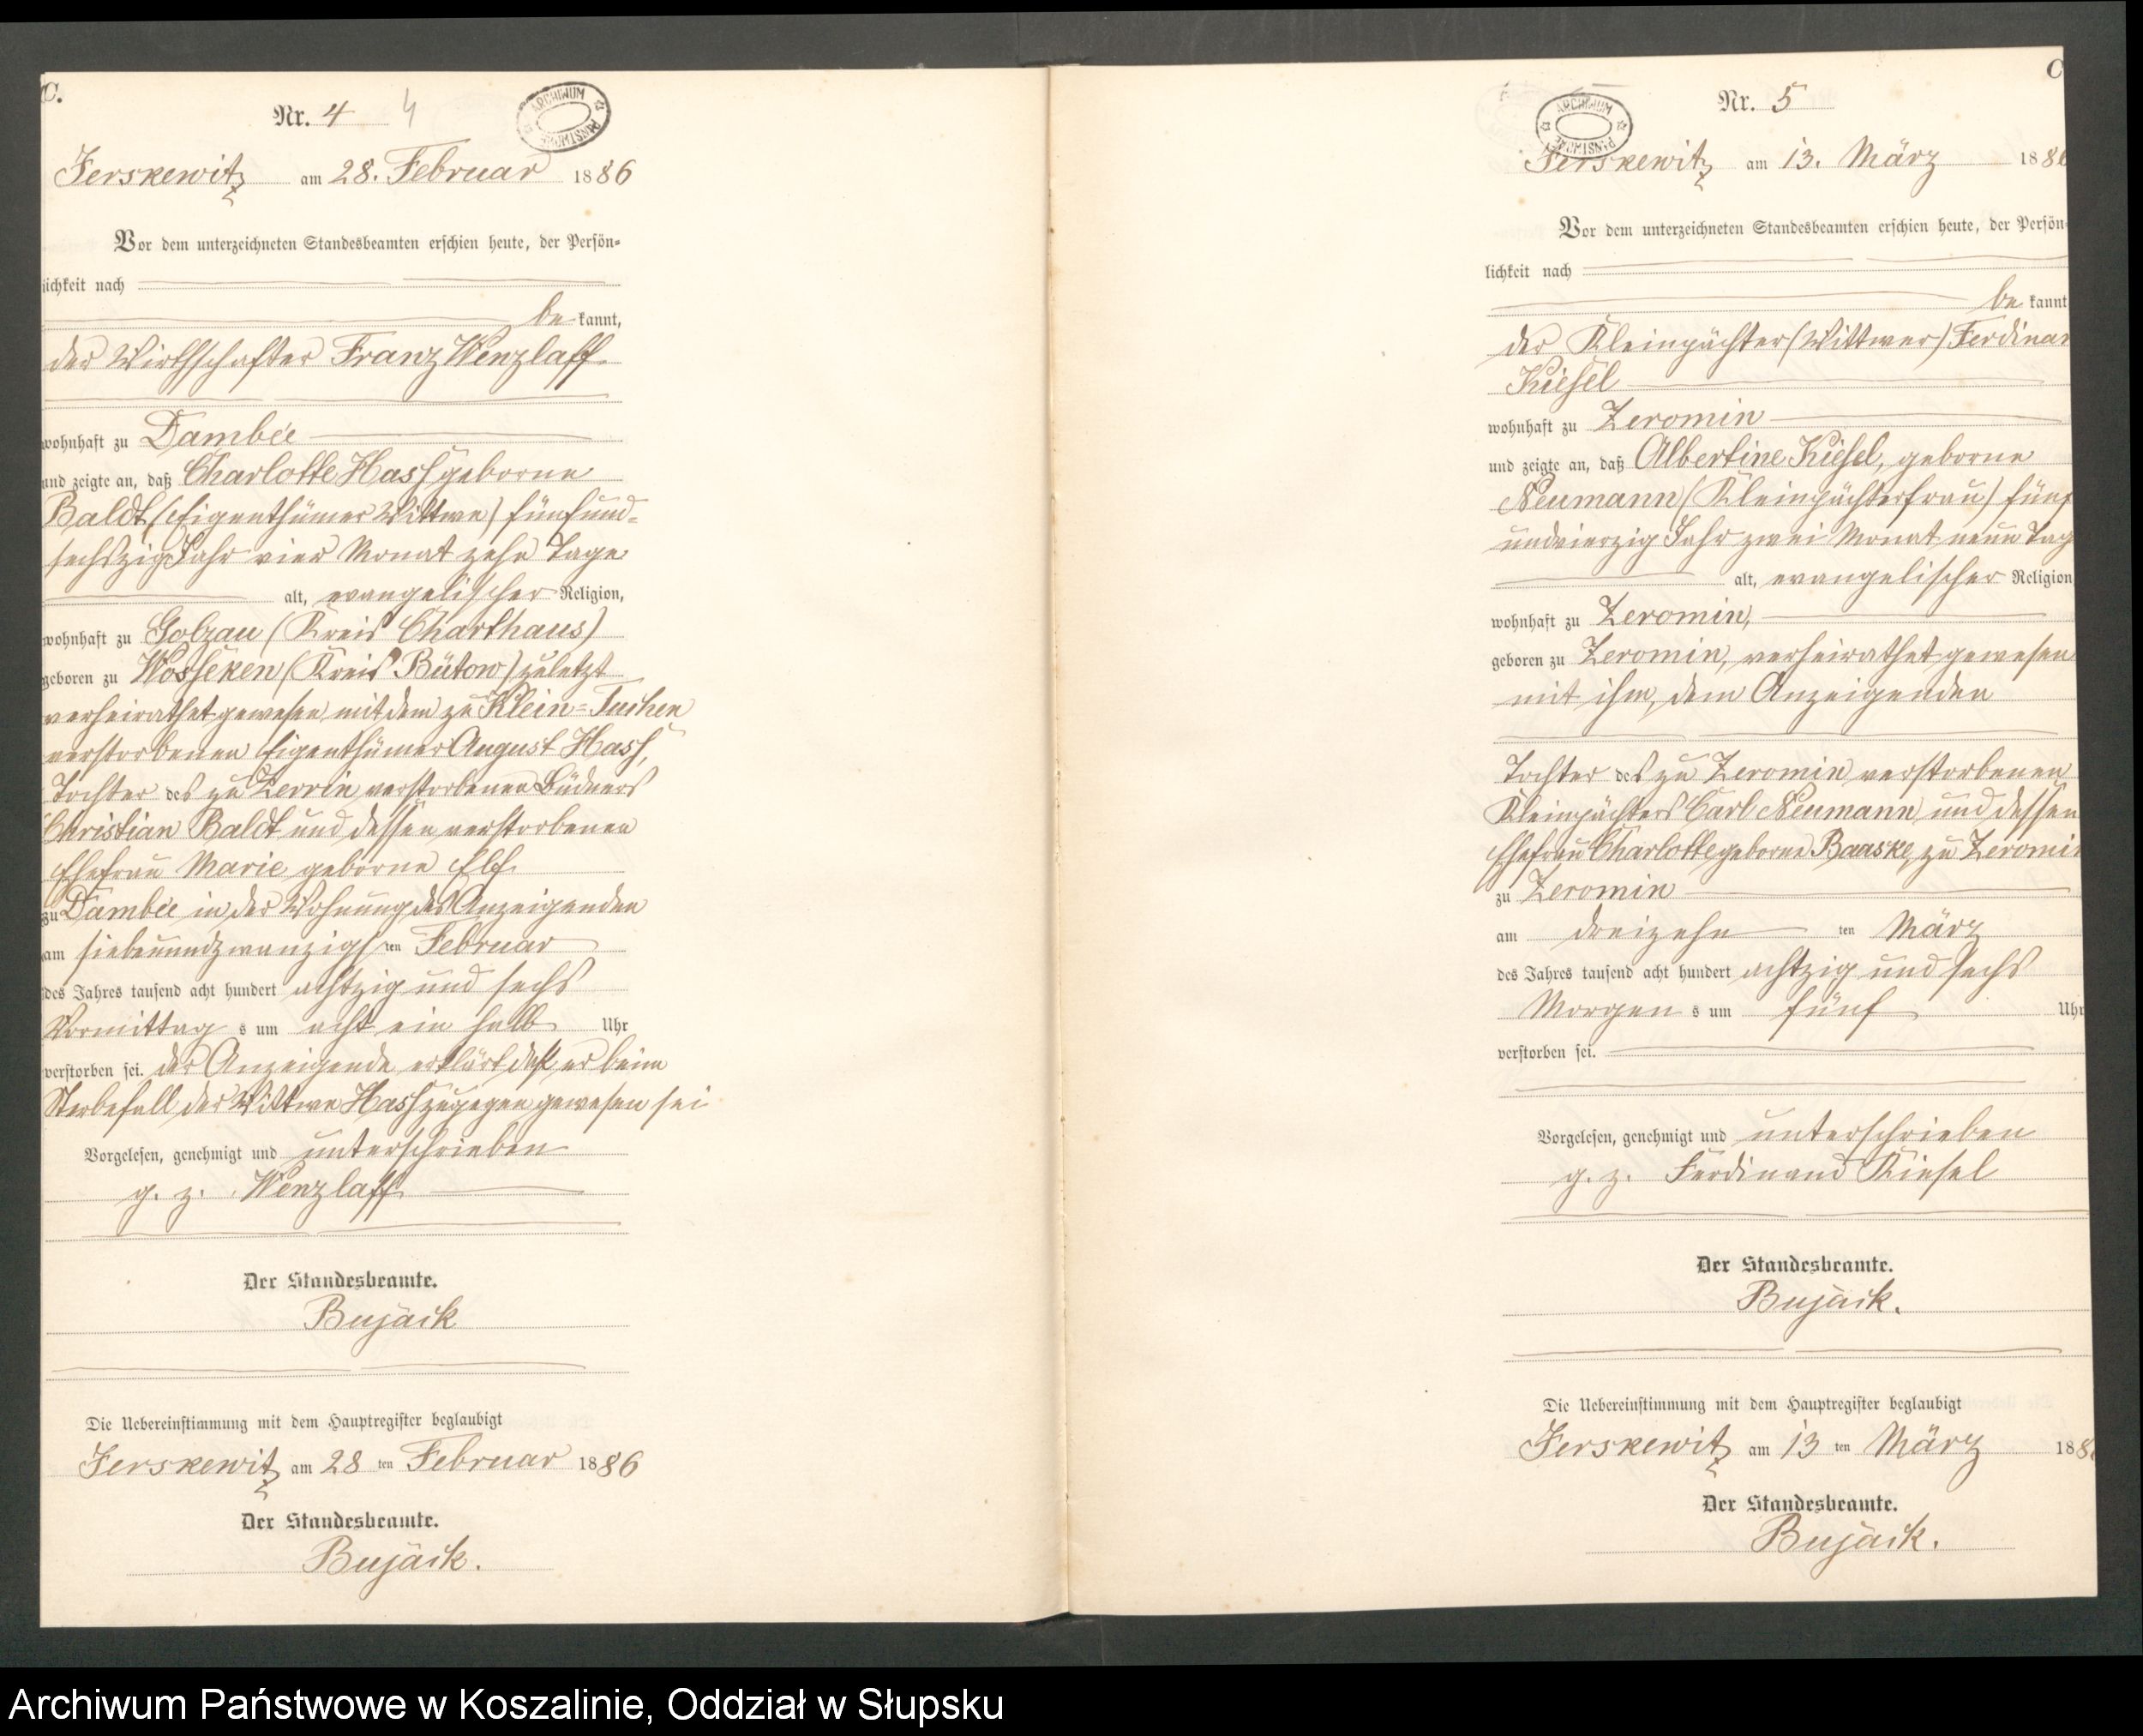 C.
Nr. 4 4
ARCHIWUM PAŃSTWOWE
Jerskewitz am 28. Februar 1886
Vor dem unterzeichneten Standesbeamten erschien heute, der Persön-
lichkeit nach
be kannt,
der Wirthschafter Franz Wenzlaff
wohnhaft zu Dambée
und zeigte an, daß Charlotte Hass geborne
Baldt (Eigenthümer Wittwe) fünfund-
sechszig Jahr vier Monat zehn Tage
alt, evangelischer Religion,
wohnhaft zu Golzau (Kreis Charthaus)
geboren zu Wosseken (Kreis Bütow) zuletzt
verheirathet gewesen mit dem zu Klein-Tuchen
verstorbenen Eigenthümer August Hass,
Tochter des zu Zerrin verstorbenen Büdners
Christian Baldt und dessen verstorbenen
Ehefrau Marie geborne
zu Dambée in der Wohnung des Anzeigenden
am siebenundzwanzigsten Februar
des Jahres tausend acht hundert achtzig und sechs
Vormittag s um acht ein halb Uhr
verstorben sei. der Anzeigende erklärt daß er beim
Sterbefall der Wittwe Hass zugegen gewesen sei
Vorgelesen, genehmigt und unterschrieben
g. z. Wenzlaff
Der Standesbeamte.
Bujack
Die Uebereinstimmung mit dem Hauptregister beglaubigt
Jerskewitz am 28 ten Februar 1886
Der Standesbeamte.
Bujack.
C
Nr. 5
ARCHIWUM PAŃSTWOWE
Jerskewitz am 13. März 1886
Vor dem unterzeichneten Standesbeamten erschien heute, der Persön-
lichkeit nach
be kannt
der Kleinpächter (Wittwer) Ferdinan
Kiesel
wohnhaft zu Zeromin
und zeigte an, daß Albertine Kiesel, geborne
Neumann (Kleinpächterfrau) fünf
undvierzig Jahr zwei Monat neun Tag
alt, evangelischer Religion
wohnhaft zu Zeromin,
geboren zu Zeromin, verheirathet gewesen
mit ihm, dem Anzeigenden
Tochter des zu Zeromin verstorbenen
Kleinpächters Carl Neumann und dessen
Ehefrau Charlotte geborne Baaske, zu Zeromin
zu Zeromin
am dreizehn ten März
des Jahres tausend acht hundert achtzig und sechs
Morgen s um fünf Uhr
verstorben sei.
Vorgelesen, genehmigt und unterschrieben
g. z. Ferdinand Kiesel
Der Standesbeamte.
Bujack.
Die Uebereinstimmung mit dem Hauptregister beglaubigt
Jerskewitz am 13 ten März 188
Der Standesbeamte.
Bujack.
Archiwum Państwowe w Koszalinie, Oddział w Słupsku